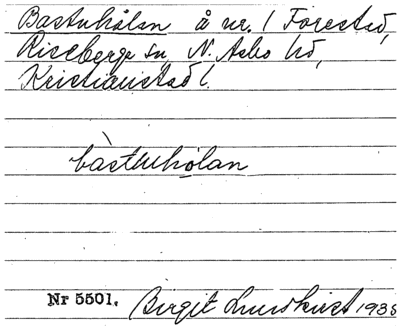 Bastuhålan å nr. 1 Forestad,
Riseberga sn N. Åsbo hd,
Kristianstad l.
bàstuhålan
Nr 5501. Birgit Lundkvist 1938